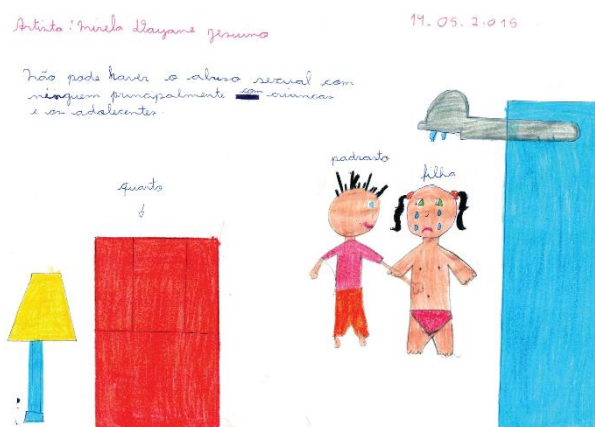 Artista: Mirela Dayane Jesuino
14.05.2015
Não pode haver o abuso sexual com
ninguem principalmente com criancas
e os adolecentes.
quarto
padrasto
filha